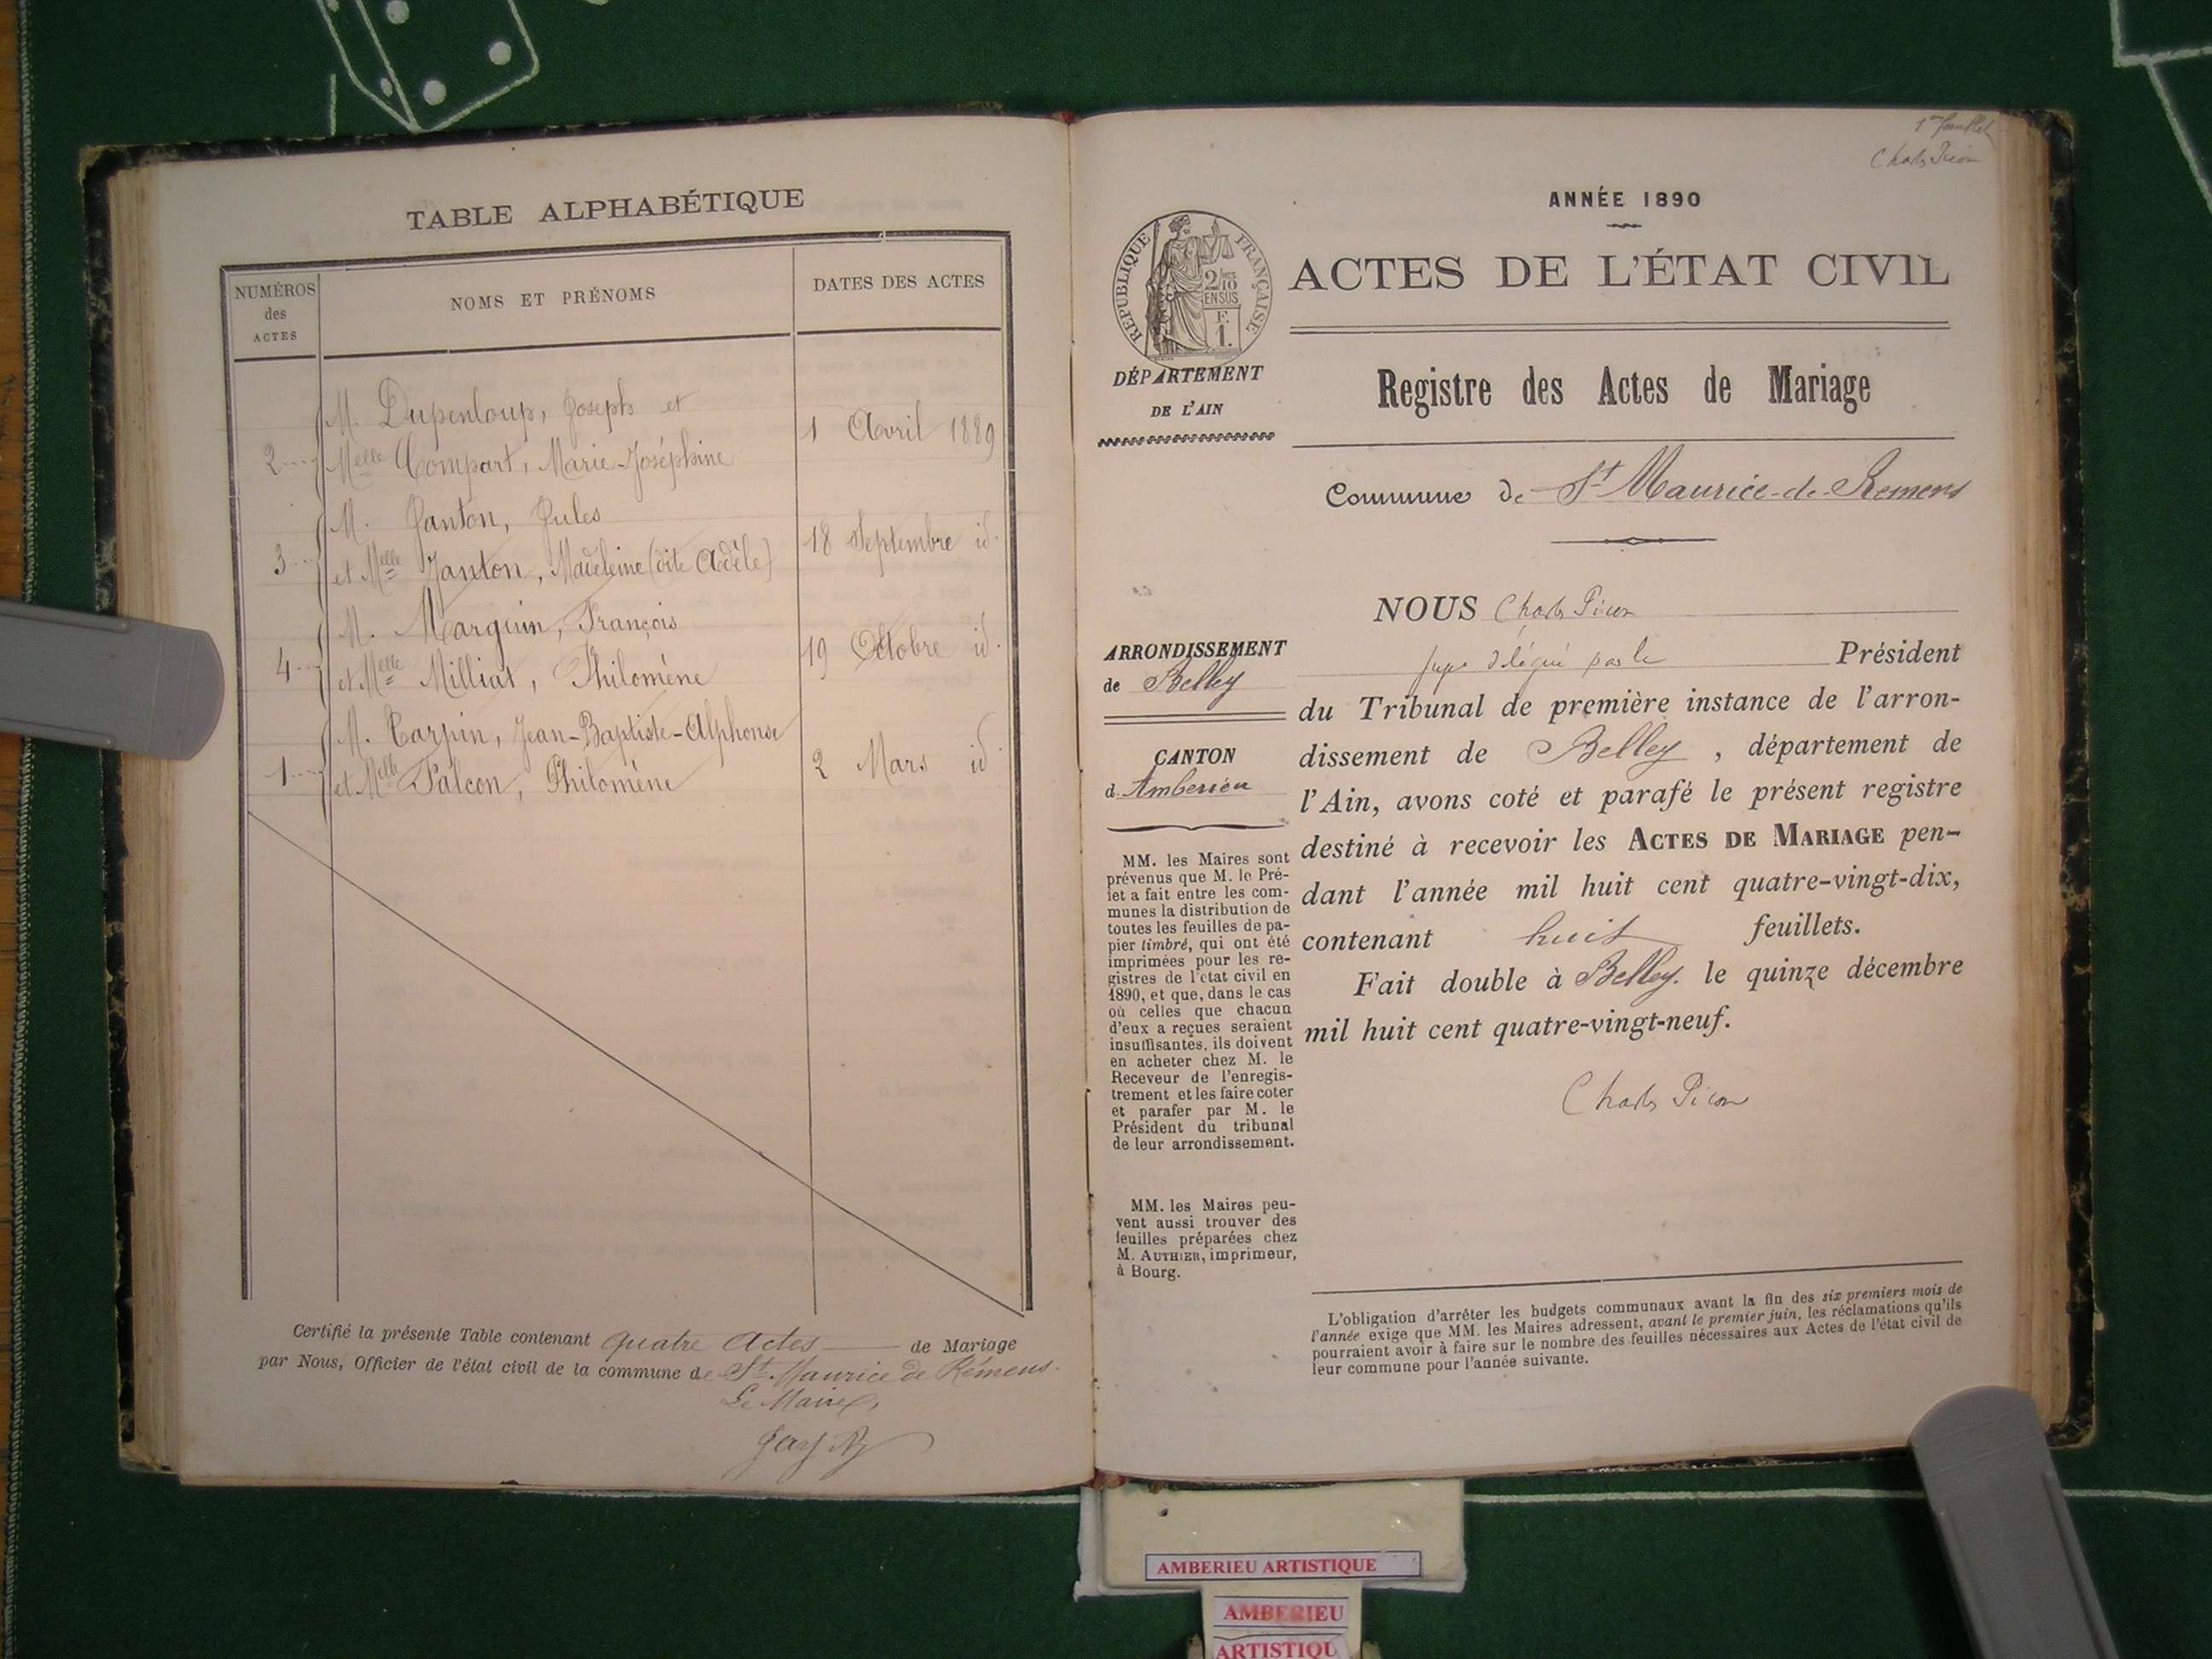 TABLE ALPHABÉTIQUE
NUMÉROS
des
ACTES
NOMS ET PRÉNOMS
DATES DES ACTES
M. Dupenloup, Joseph et
2 Melle Compart, Marie-Joséphine
1 Avril 1889
M. Janton, Jules
3 et Melle Janton, Madeleine (dite Adèle)
18 Septembre id.
M. Marguin, François
4 et Melle Milliat, Philomène
19 Octobre id.
M. Carpin, Jean-Baptiste-Alphonse
1 et Melle Falcon, Philomène
2 Mars id.
Certifié la présente Table contenant quatre actes de Mariage
par Nous, Officier de l'état civil de la commune de St Maurice de Rémens.
Le Maire,
1er feuillet
Charles Picon
ANNÉE 1890
RÉPUBLIQUE FRANÇAISE
2/10
EN SUS
F.
1.
ACTES DE L'ÉTAT CIVIL
DÉPARTEMENT
DE L'AIN
Registre des Actes de Mariage
Commune de St Maurice-de-Remens
ARRONDISSEMENT
de Belley
CANTON
d'Ambérieu
MM. les Maires sont
prévenus que M. le Pré-
fet a fait entre les com-
munes la distribution de
toutes les feuilles de pa-
pier timbré, qui ont été
imprimées pour les re-
gistres de l'état civil en
1890, et que, dans le cas
où celles que chacun
d'eux a reçues seraient
insuffisantes, ils doivent
en acheter chez M. le
Receveur de l'enregis-
trement et les faire coter
et parafer par M. le
Président du tribunal
de leur arrondissement.
MM. les Maires peu-
vent aussi trouver des
feuilles préparées chez
M. AUTHIER, imprimeur,
à Bourg.
NOUS Charles Picon
Juge délégué par le Président
du Tribunal de première instance de l'arron-
dissement de Belley, département de
l'Ain, avons coté et parafé le présent registre
destiné à recevoir les ACTES DE MARIAGE pen-
dant l'année mil huit cent quatre-vingt-dix,
contenant huit feuillets.
Fait double à Belley. le quinze décembre
mil huit cent quatre-vingt-neuf.
Charles Picon
L'obligation d'arrêter les budgets communaux avant la fin des six premiers mois de
l'année exige que MM. les Maires adressent, avant le premier juin, les réclamations qu'ils
pourraient avoir à faire sur le nombre des feuilles nécessaires aux Actes de l'état civil de
leur commune pour l'année suivante.
AMBERIEU ARTISTIQUE
AMBERIEU
ARTISTIQU